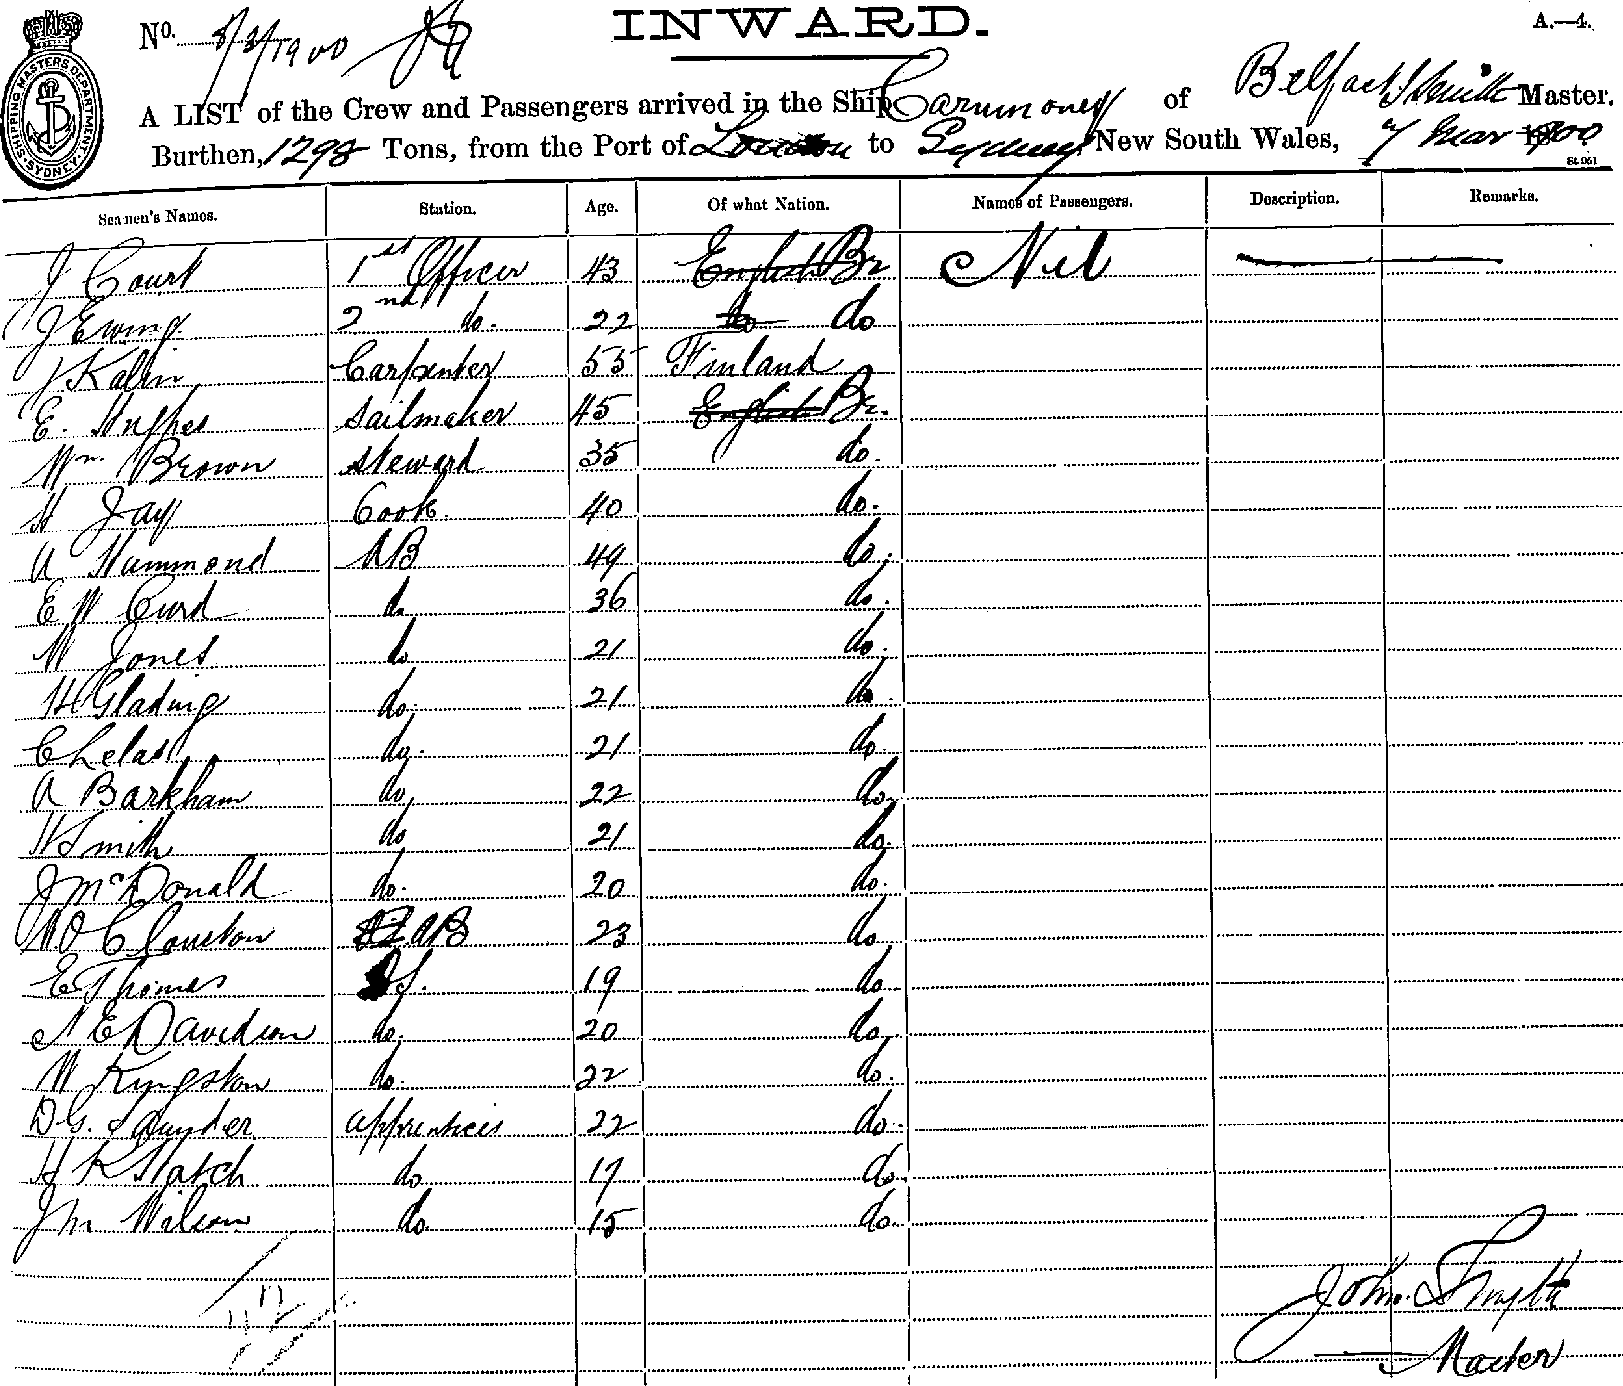 INWARD.
A.—4.
No. 8/3/1900
SHIPPING MASTERS DEPARTMENT SYDNEY
A LIST of the Crew and Passengers arrived in the Ship Carnmoney of Belfast Smith Master.
Burthen, 1298 Tons, from the Port of London to Sydney New South Wales, 7 Mar 1900
St 061
Seamen's Names. Station. Age. Of what Nation. Names of Passengers. Description. Remarks.
J Court 1st Officer 43 English Br Nil
J Ewing 2nd do. 22 do do
J Kalin Carpenter 55 Finland
E. Hughes Sailmaker 45 English Br.
Wm Brown Steward 35 do.
H Jay Cook 40 do.
A Hammond AB 49 do.
E W Curd do 36 do.
W Jones do 21 do.
H Glading do. 21 do.
C Lelas do. 21 do.
A Barkham do 22 do.
H Smith do 21 do.
J McDonald do. 20 do.
W O Clouston AB 23 do
E Thomas OS. 19 do
N E Davidson do. 20 do.
W Kyngston do. 22 do.
D G. Snyder apprentices 22 do.
H K Hatch do 17 do
J M Wilson do 15 do.
John Smyth
Master